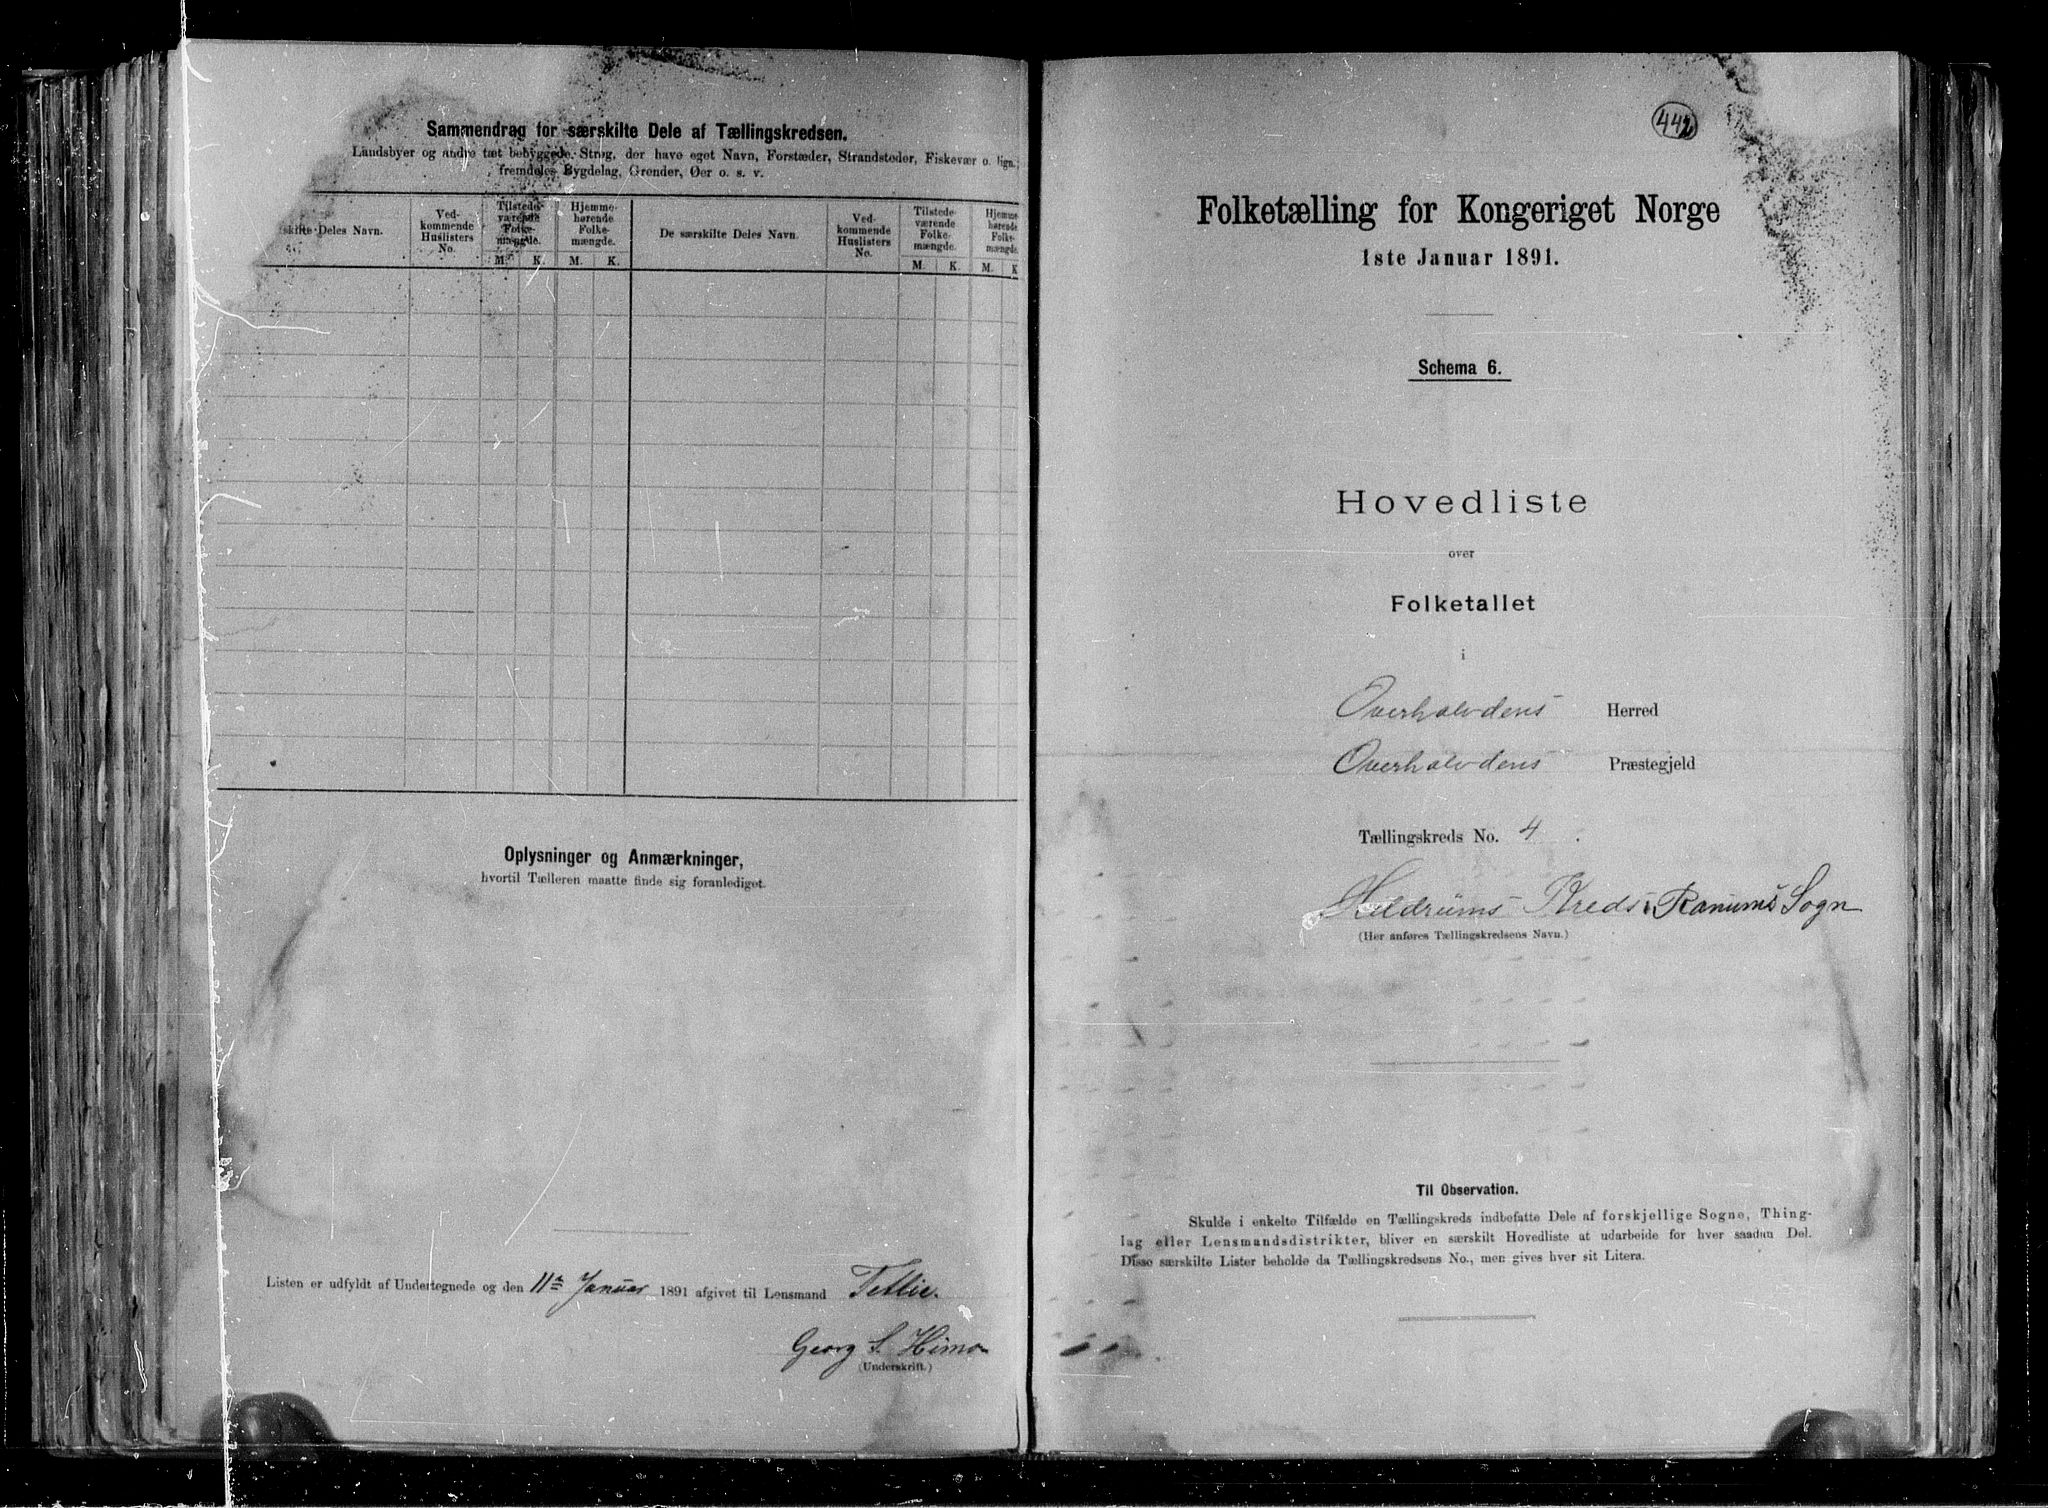 Sammendrag for særskilte Dele af Tællingskredsen.
Landsbyer og andre tæt bebyggede Strøg, der have eget Navn, Forstæder, Strandsteder, Fiskevær o. lign.,
fremdeles Bygdelag, Grender, Øer o. s. v.
skilte Deles Navn.
Ved-
kommende
Huslisters
No.
Tilstede-
værende
Folke-
mængde.
M. K.
Hjemme-
hørende
Folke-
mængde.
M. K.
De særskilte Deles Navn.
Ved-
kommende
Huslisters
No.
Tilstede-
værende
Folke-
mængde.
M. K.
Hjemme-
hørende
Folke-
mængde.
M. K
Oplysninger og Anmærkninger,
hvortil Tælleren maatte finde sig foranlediget.
Listen er udfyldt af Undertegnede og den 11te Januar 1891 afgivet til Lensmand Tetlie.
Georg S. Himo
(Underskrift.)
442
Folketælling for Kongeriget Norge
1ste Januar 1891.
Schema 6.
Hovedliste
over
Folketallet
i
Overhalvdens Herred
Overhalvdens Præstegjeld
Tællingskreds No. 4.
Hildrums Kreds i Ranums Sogn
(Her anføres Tællingskredsens Navn.)
Til Observation.
Skulde i enkelte Tilfælde en Tællingskreds indbefatte Dele af forskjellige Sogne, Thing-
lag eller Lensmandsdistrikter, bliver en særskilt Hovedliste at udarbeide for hver saadan Del.
Disse særskilte Lister beholde da Tællingskredsens No., men gives hver sit Litera.